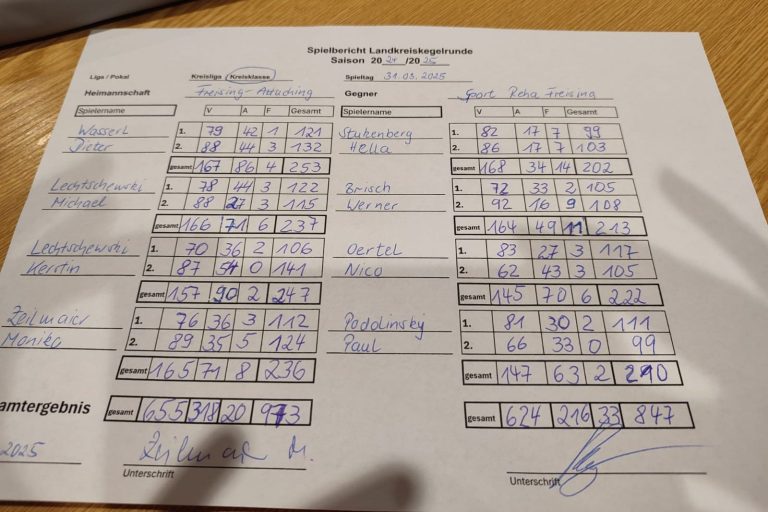 Spielbericht Landkreiskegelrunde
Saison 2024/2025
Liga / Pokal Kreisliga Kreisklasse Spieltag 31.03.2025
Heimmannschaft Freising-Attaching Gegner Sport Reha Freising
Spielername V A F Gesamt Spielername V A F Gesamt
Wasserl 1. 79 42 1 121 Stukenberg 82 17 7 99
Dieter 2. 88 44 3 132 Hella 86 17 7 103
gesamt 167 86 4 253 gesamt 168 34 14 202
Lechtschewski 1. 78 44 3 122 Brisch 1. 72 33 2 105
Michael 2. 88 27 3 115 Werner 2. 92 16 9 108
gesamt 166 71 6 237 gesamt 164 49 11 213
Lechtschewski 1. 70 36 2 106 Oertel 1. 83 27 3 117
Kerstin 2. 87 54 0 141 Nico 2. 62 43 3 105
gesamt 157 90 2 247 gesamt 145 70 6 222
Zeilmaier 1. 76 36 3 112 Podolinsky 1. 81 30 2 111
Monika 2. 89 35 5 124 Paul 2. 66 33 0 99
gesamt 165 71 8 236 gesamt 147 63 2 210
amtergebnis gesamt 655 318 20 973 gesamt 624 216 33 847
2025 Zeilmaier M.
Unterschrift Unterschrift